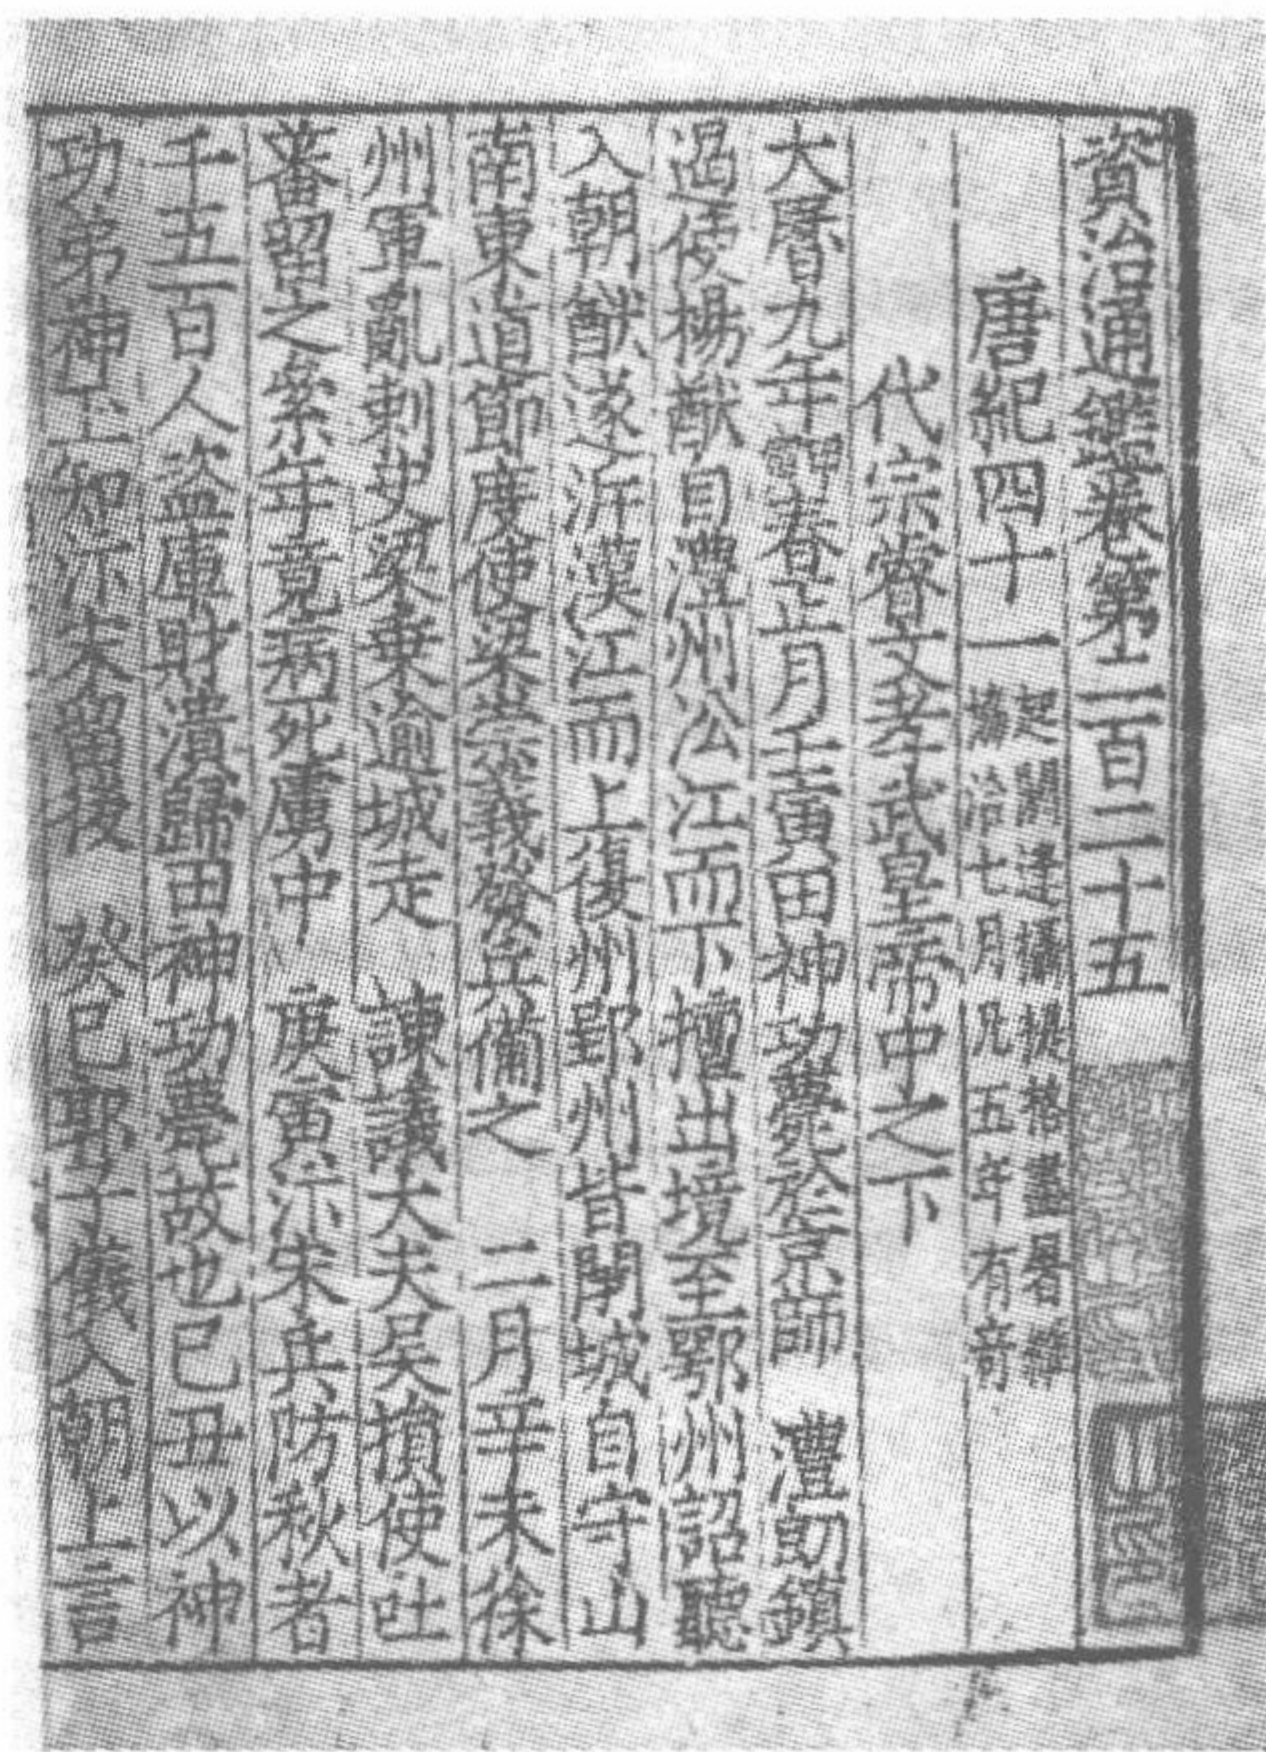 資治通鑑卷第二百二十五
唐紀四十一 起閼逢攝提格盡屠維
協洽七月凡五年有奇
代宗睿文孝武皇帝中之下
大曆九年春正月壬寅田神功薨於京師 澧朗鎮
遏使楊猷自澧州沿江而下擅出境至鄂州詔聽
入朝猷遂泝漢江而上復州郢州皆閉城自守山
南東道節度使梁崇義發兵備之 二月辛未徐
州軍亂刺史梁乗逾城走 諫議大夫吴損使吐
蕃留之累年竟病死虜中 庚寅汴宋兵防秋者
千五百人盗庫財潰歸田神功薨故也已丑以神
功弟神玉知汴宋留後 癸巳郭子儀入朝上言